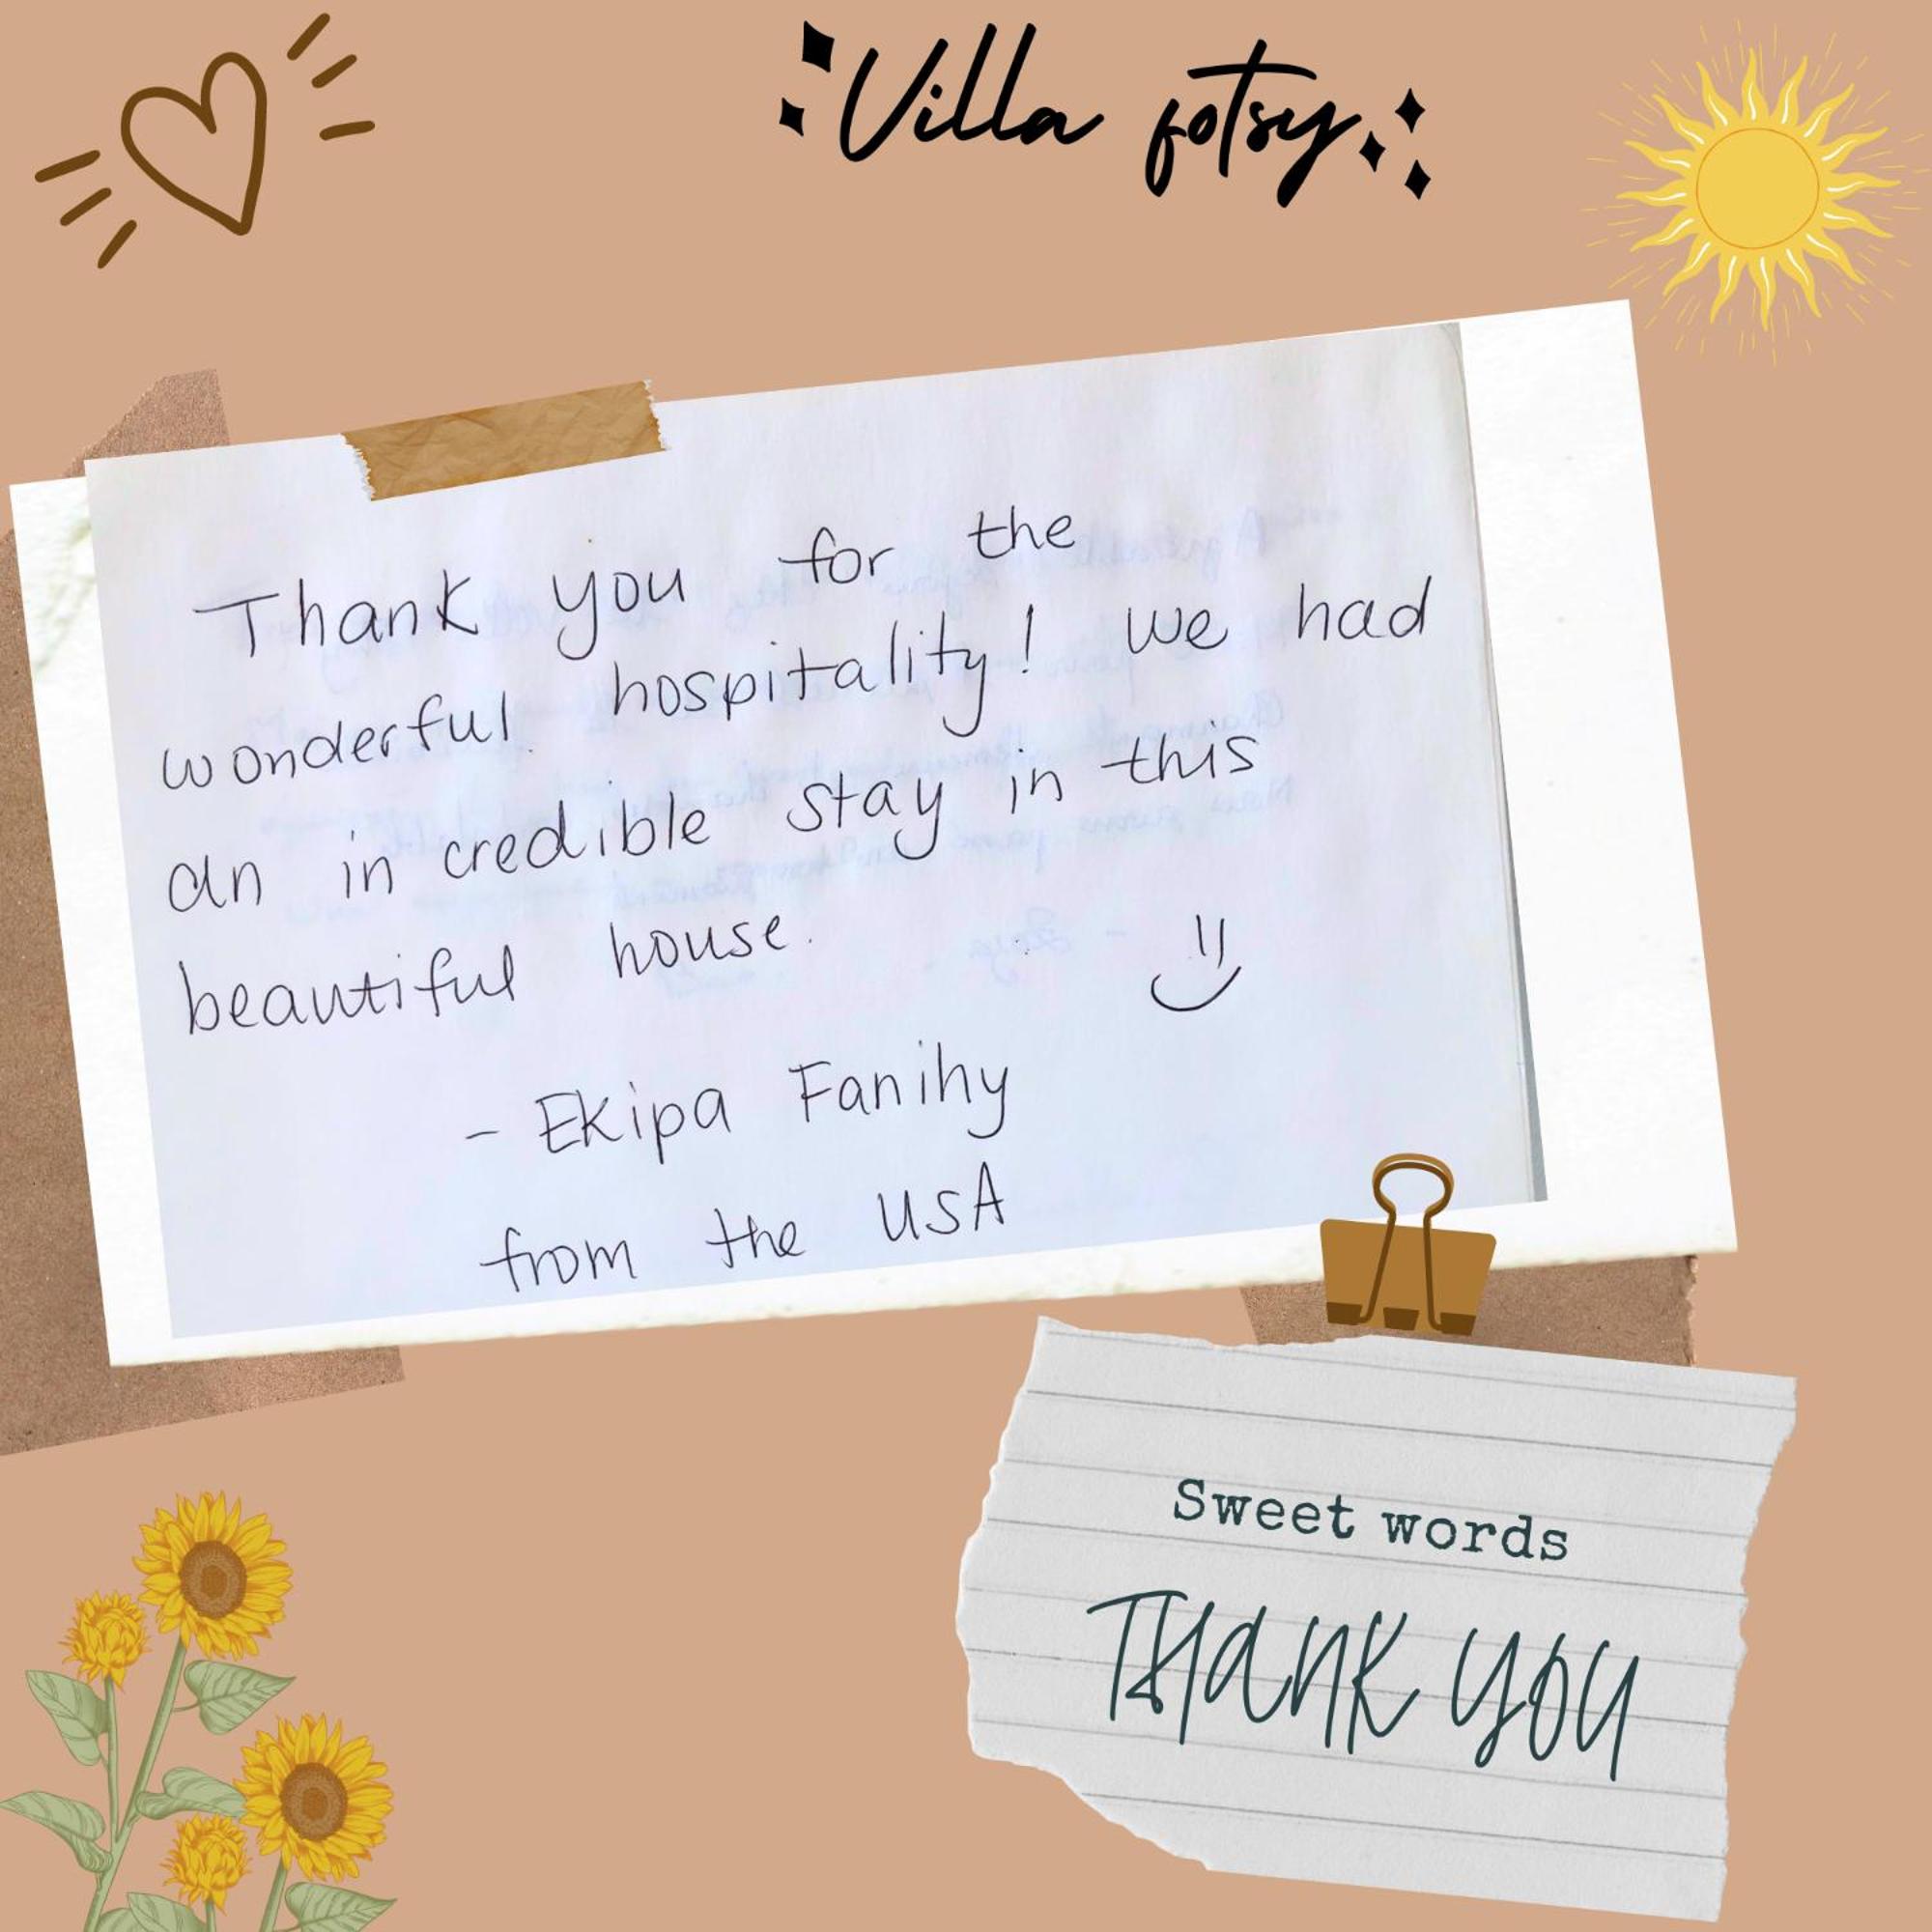 Villa fotsy
Thank you for the
wonderful hospitality! we had
an incredible stay in this
beautiful house.
- Ekipa Fanihy
from the USA
Sweet words
THANK YOU